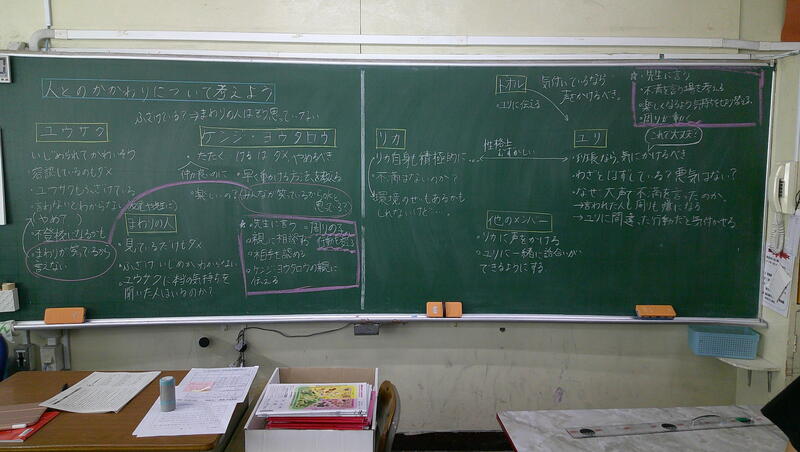 人とのかかわりについて考えよう
ふざけている?→まわりの人はそう思っていない
ユウサク
いじめられてかわいそう
・容認しているのもダメ
・ユウサクもふざけている
・言わないとわからない
(やめて)
不登校になるかも
まわりが笑ってるから
言えない
まわりの人
・見ているだけもダメ
・ふざけ いじめか、わからない。
・ユウサクに 気持ちを
聞いた人はいるのか?
ケンジ・ヨウタロウ
・たたく けるはダメ やめるべき
仲良いのに
・早く動ける方法を教える
・楽しいの?
みんなが笑っているからいいと
思ってる?
☆・先生に言う
・親に相談する
・相手を認める
・ケンジ・ヨウタロウの親に
伝える
リカ
リカ自身も積極的に
・不満はないのか?
・環境のせいもあるかも
しれないけど…。
性格上
むずかしい
トオル
・ユリに伝える
気付いているなら
声をかけるべき。
☆・先生に言う
・不満を言う場を考える
・楽しくなるよう気持ちを切り替える
・周りが動く
ユリ
これで大丈夫?
・部長なら、気にかけるべき
・わざとはずしている?悪気はない?
・なぜ、大声で不満を言ったのか、
→言われた人も周りも嫌になる
→ユリに間違った行動だと気付かせる
他のメンバー
・リカに声をかける
・ユリに一緒に話合いが
できるようにする